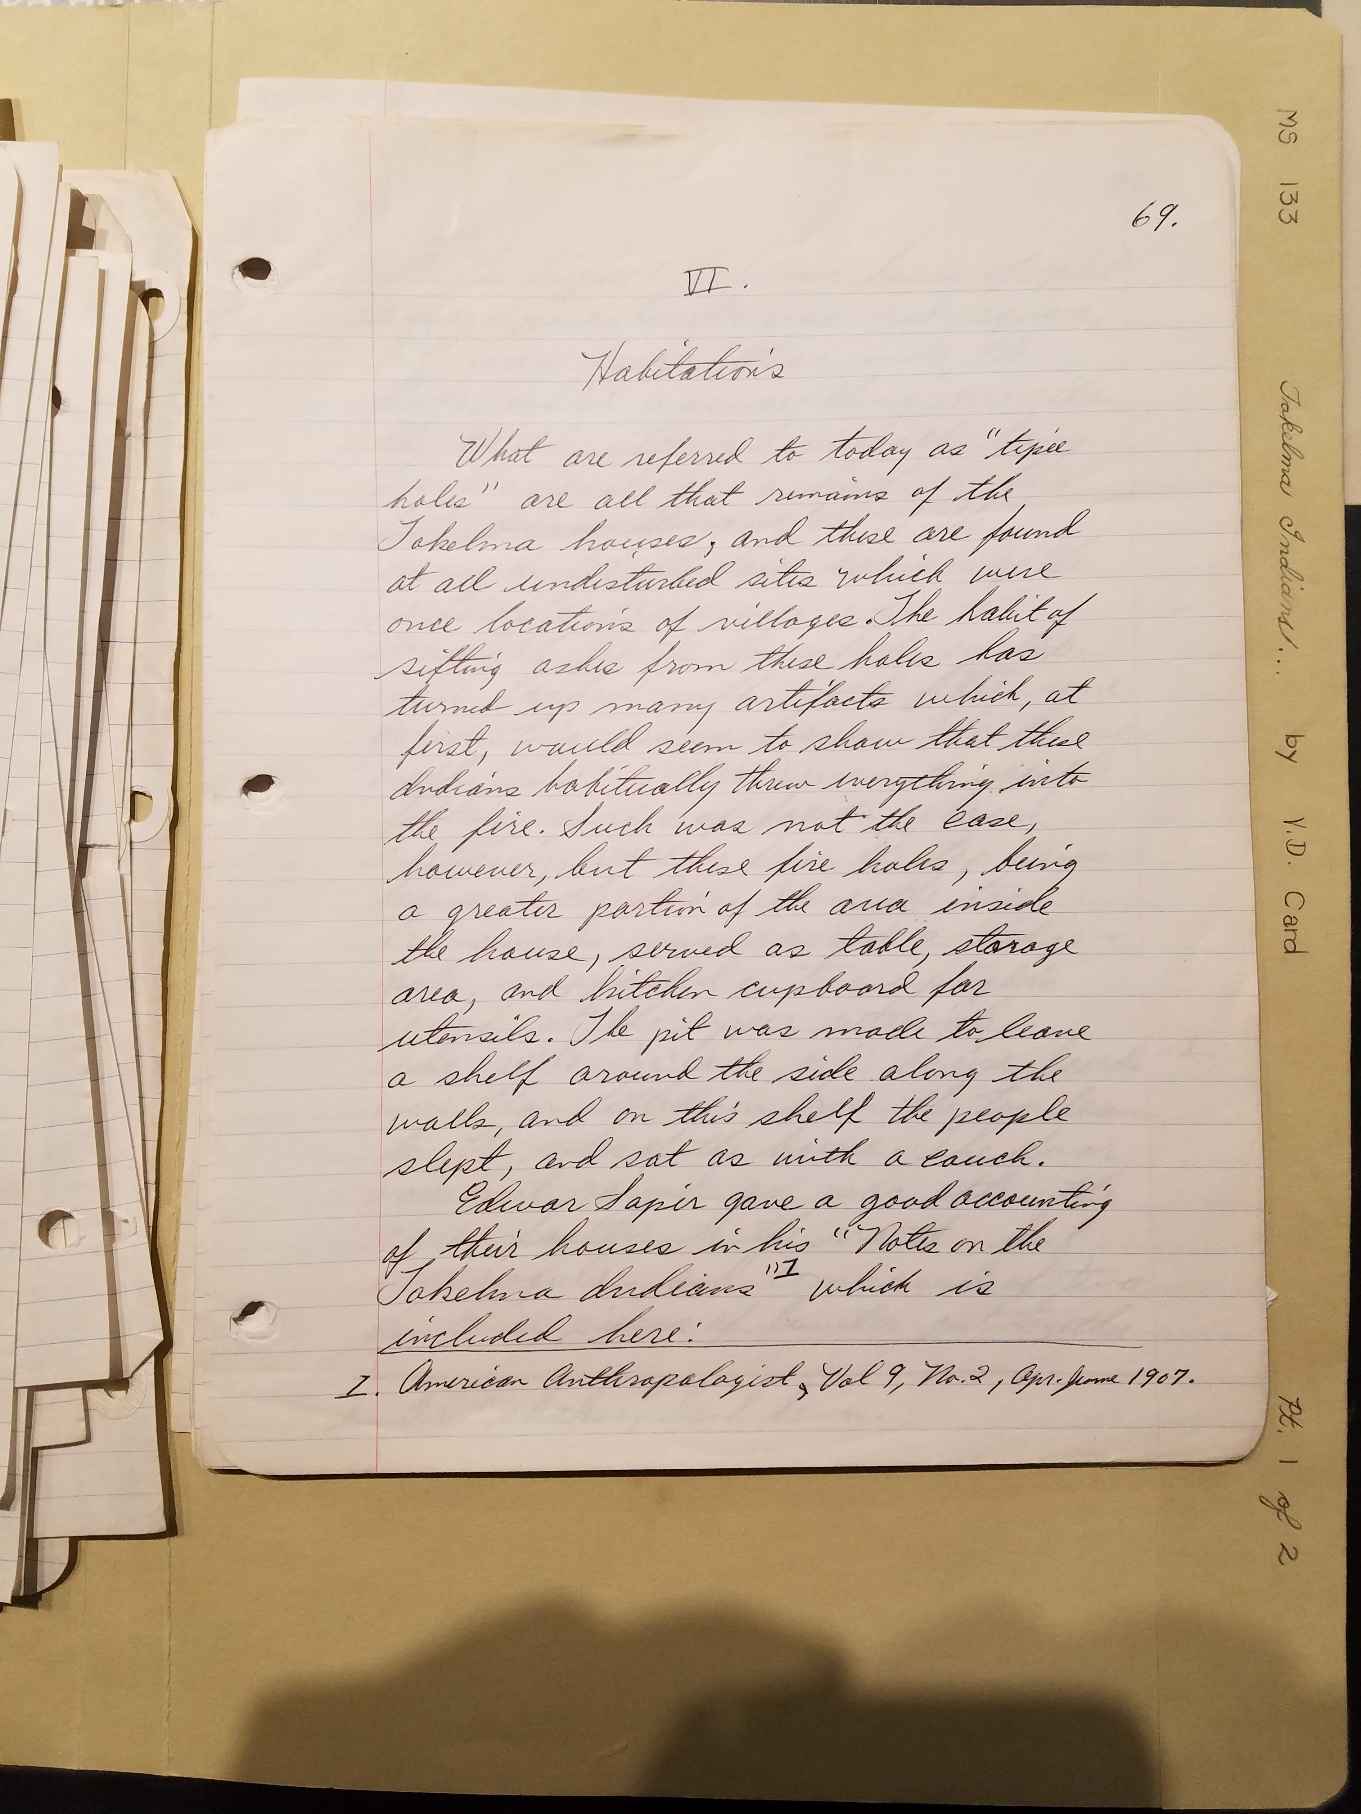 69.
VI.
Habitations
What are referred to today as "tipee
holes" are all that remains of the
Takelma houses, and these are found
at all undisturbed sites which were
once locations of villages. The habit of
sifting ashes from these holes has
turned up many artifacts which, at
first, would seem to show that these
Indians habitually threw everything into
the fire. Such was not the case,
however, but these fire holes, being
a greater portion of the area inside
the house, served as table, storage
area, and kitchen cupboard for
utensils. The pit was made to leave
a shelf around the side along the
walls, and on this shelf the people
slept, and sat as with a couch.
Edwar Sapir gave a good accounting
of their houses in his "Notes on the
Takelma Indians"1 which is
included here:
I. American Anthropologist, Vol 9, No. 2, Apr. June 1907.
MS 133 Takelma Indians... by V.D. Card Pt. 1 of 2